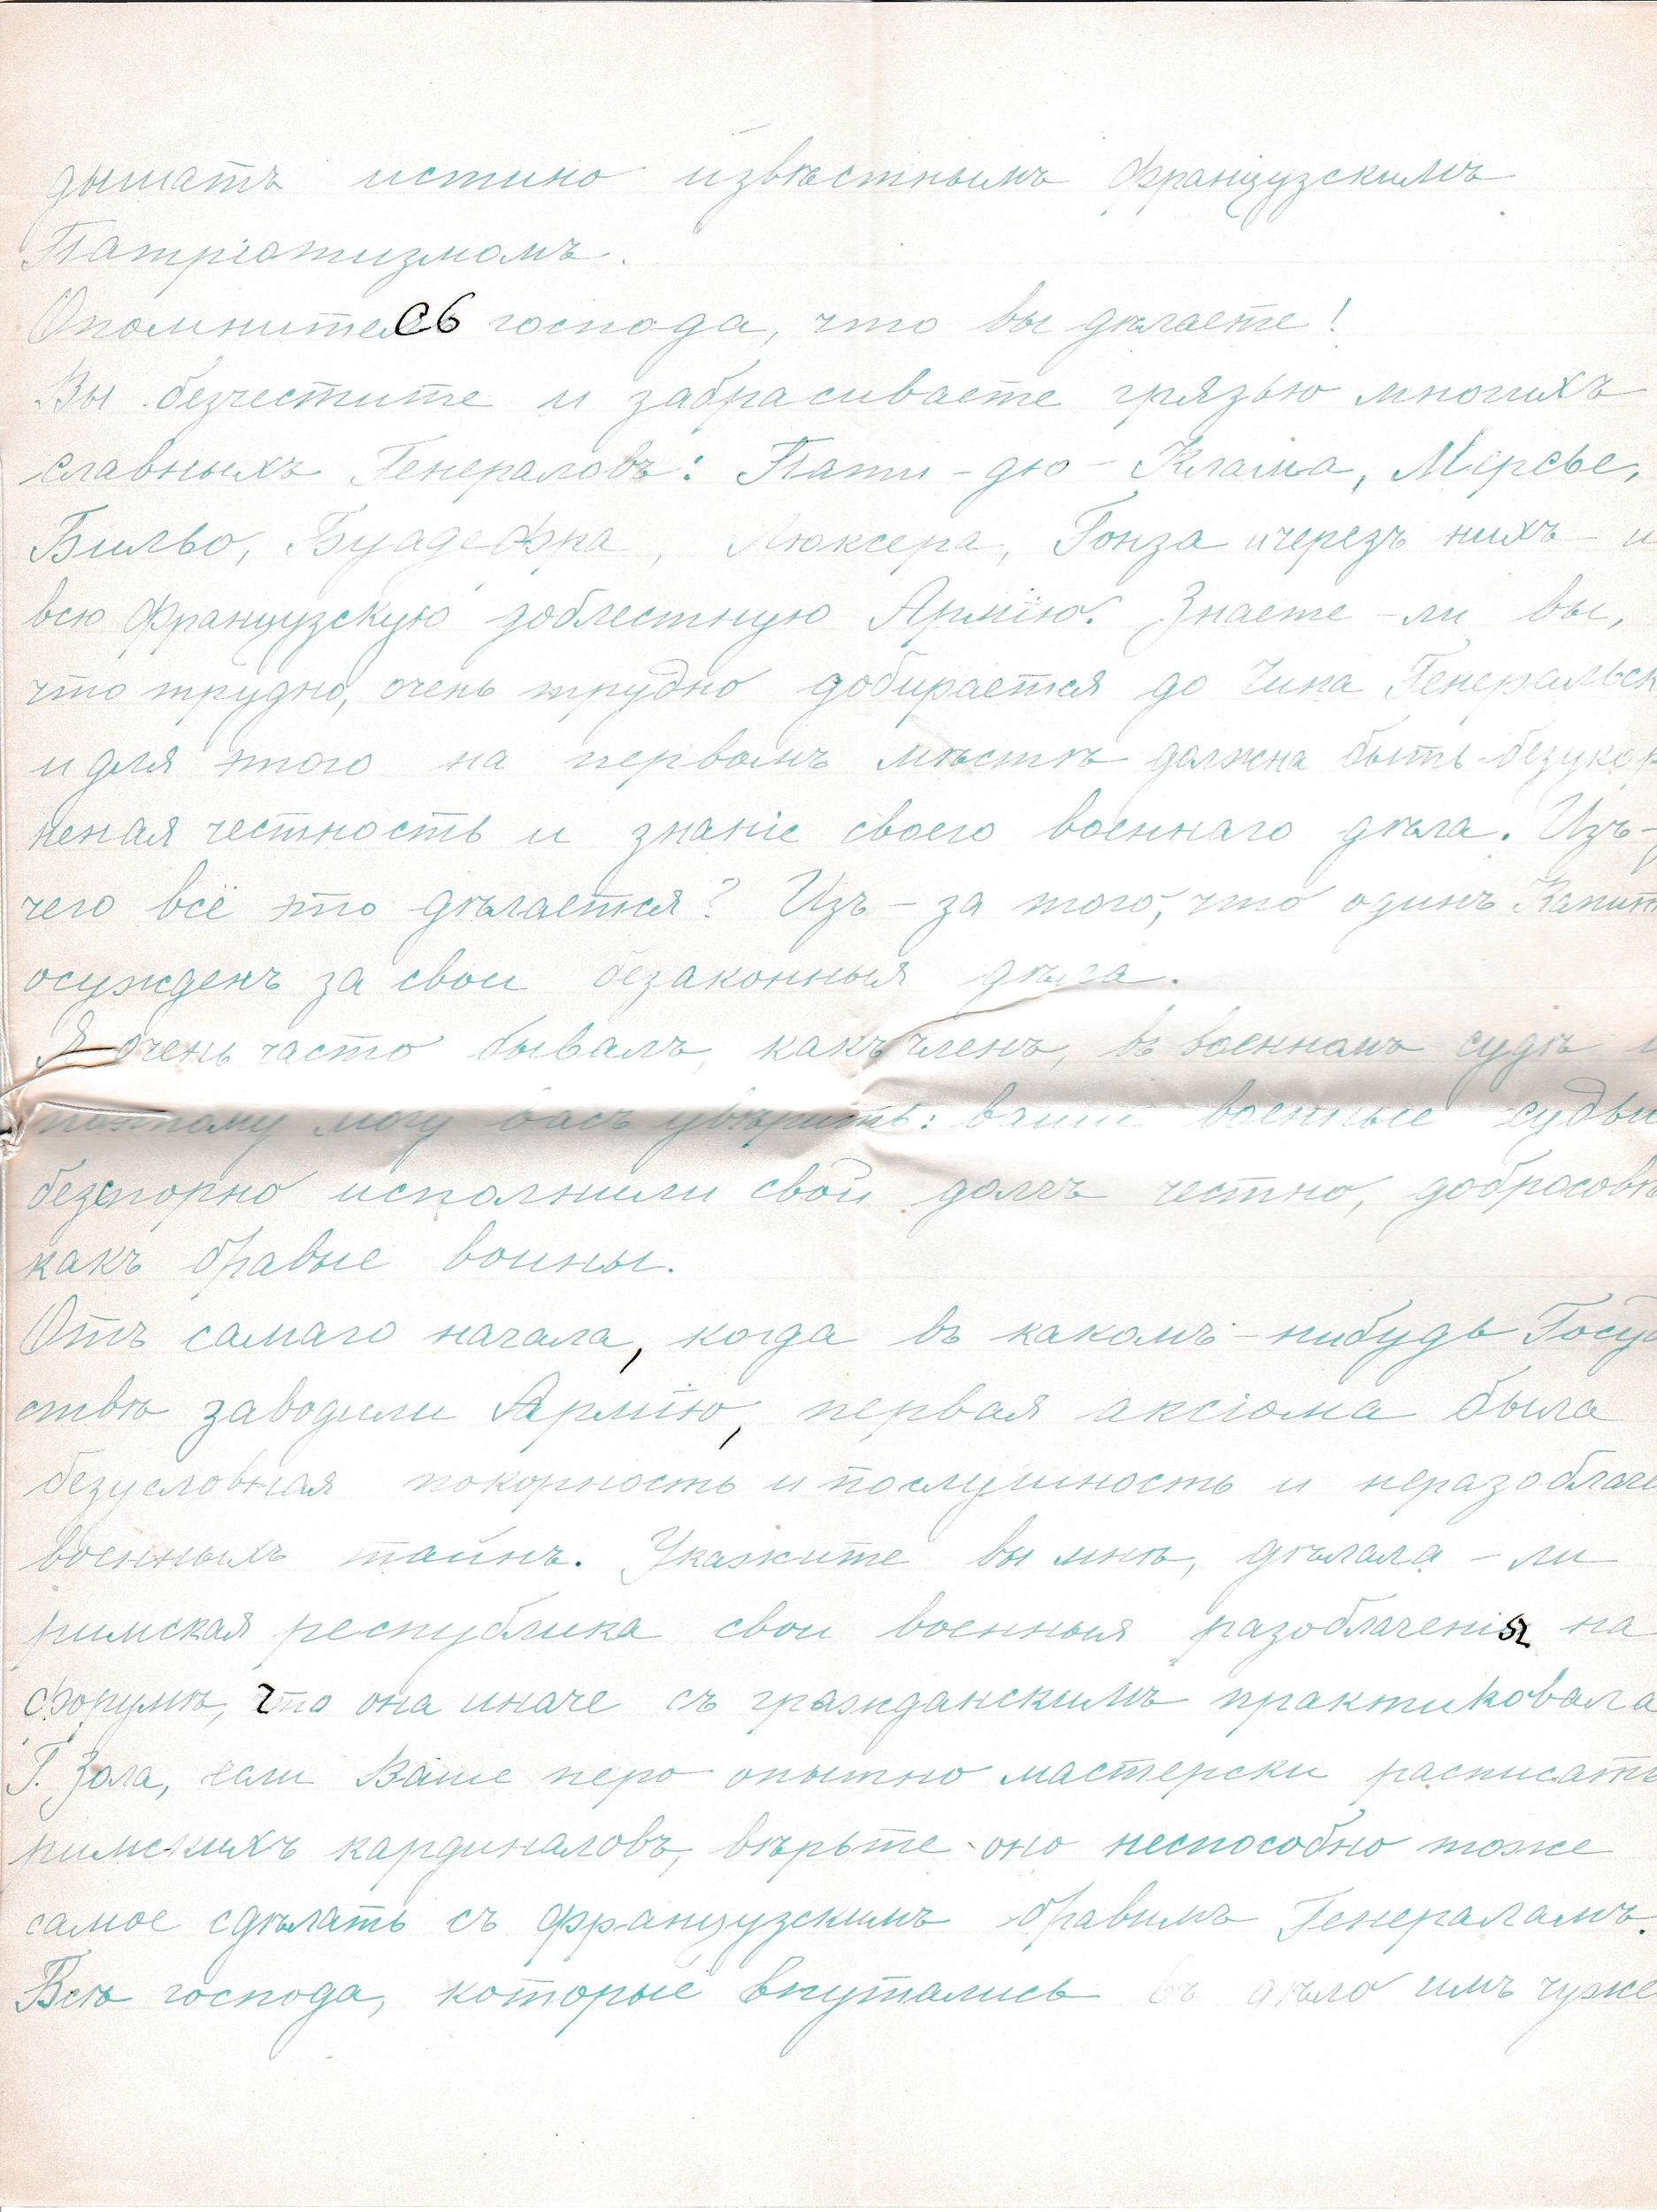 дышатъ истино извѣстнымъ Французскимъ
Патріотизмомъ.
Опомнитесь господа, что вы дѣлаете!
Вы безчестите и забрасываете грязью многихъ
славныхъ Генераловъ: Пати-дю-Клама, Мерсье,
Бильо, Буадефра, Люксера, Гонза и черезъ нихъ и
всю Французскую доблестную Армію. Знаете-ли вы,
что трудно, очень трудно добирается до Чина Генеральск
и для этого на первомъ мѣстѣ должна быть безукор
неная честность и знаніе своего военнаго дѣла. Изъ-
чего всё это дѣлается? Изъ-за того, что одинъ Капит
осужденъ за свои безаконныя дѣла.
Я очень часто бывалъ, какъ членъ, въ военномъ судѣ и
поэтому могу васъ увѣрить: ваши военные судьи
безспорно исполнили свой долгъ честно, добросовѣ
какъ бравые воины.
Отъ самаго начала, когда въ какомъ-нибудь Госуд
ствѣ заводили Армію, первая аксіома была
безусловная покорность и послушность и неразоблаче
военныхъ тайнъ. Укажите вы мнѣ, дѣлала-ли
римская республика свои военныя разоблаченія на
форумѣ, что она иначе съ гражданскимъ практиковала
Г. Зола, если Ваше перо опытно мастерски расписать
римскихъ кардиналовъ, вѣрьте оно неспособно тоже
самое сдѣлать съ французскимъ бравымъ Генераламъ.
Всѣ господа, которые впутались въ дѣло имъ чуже